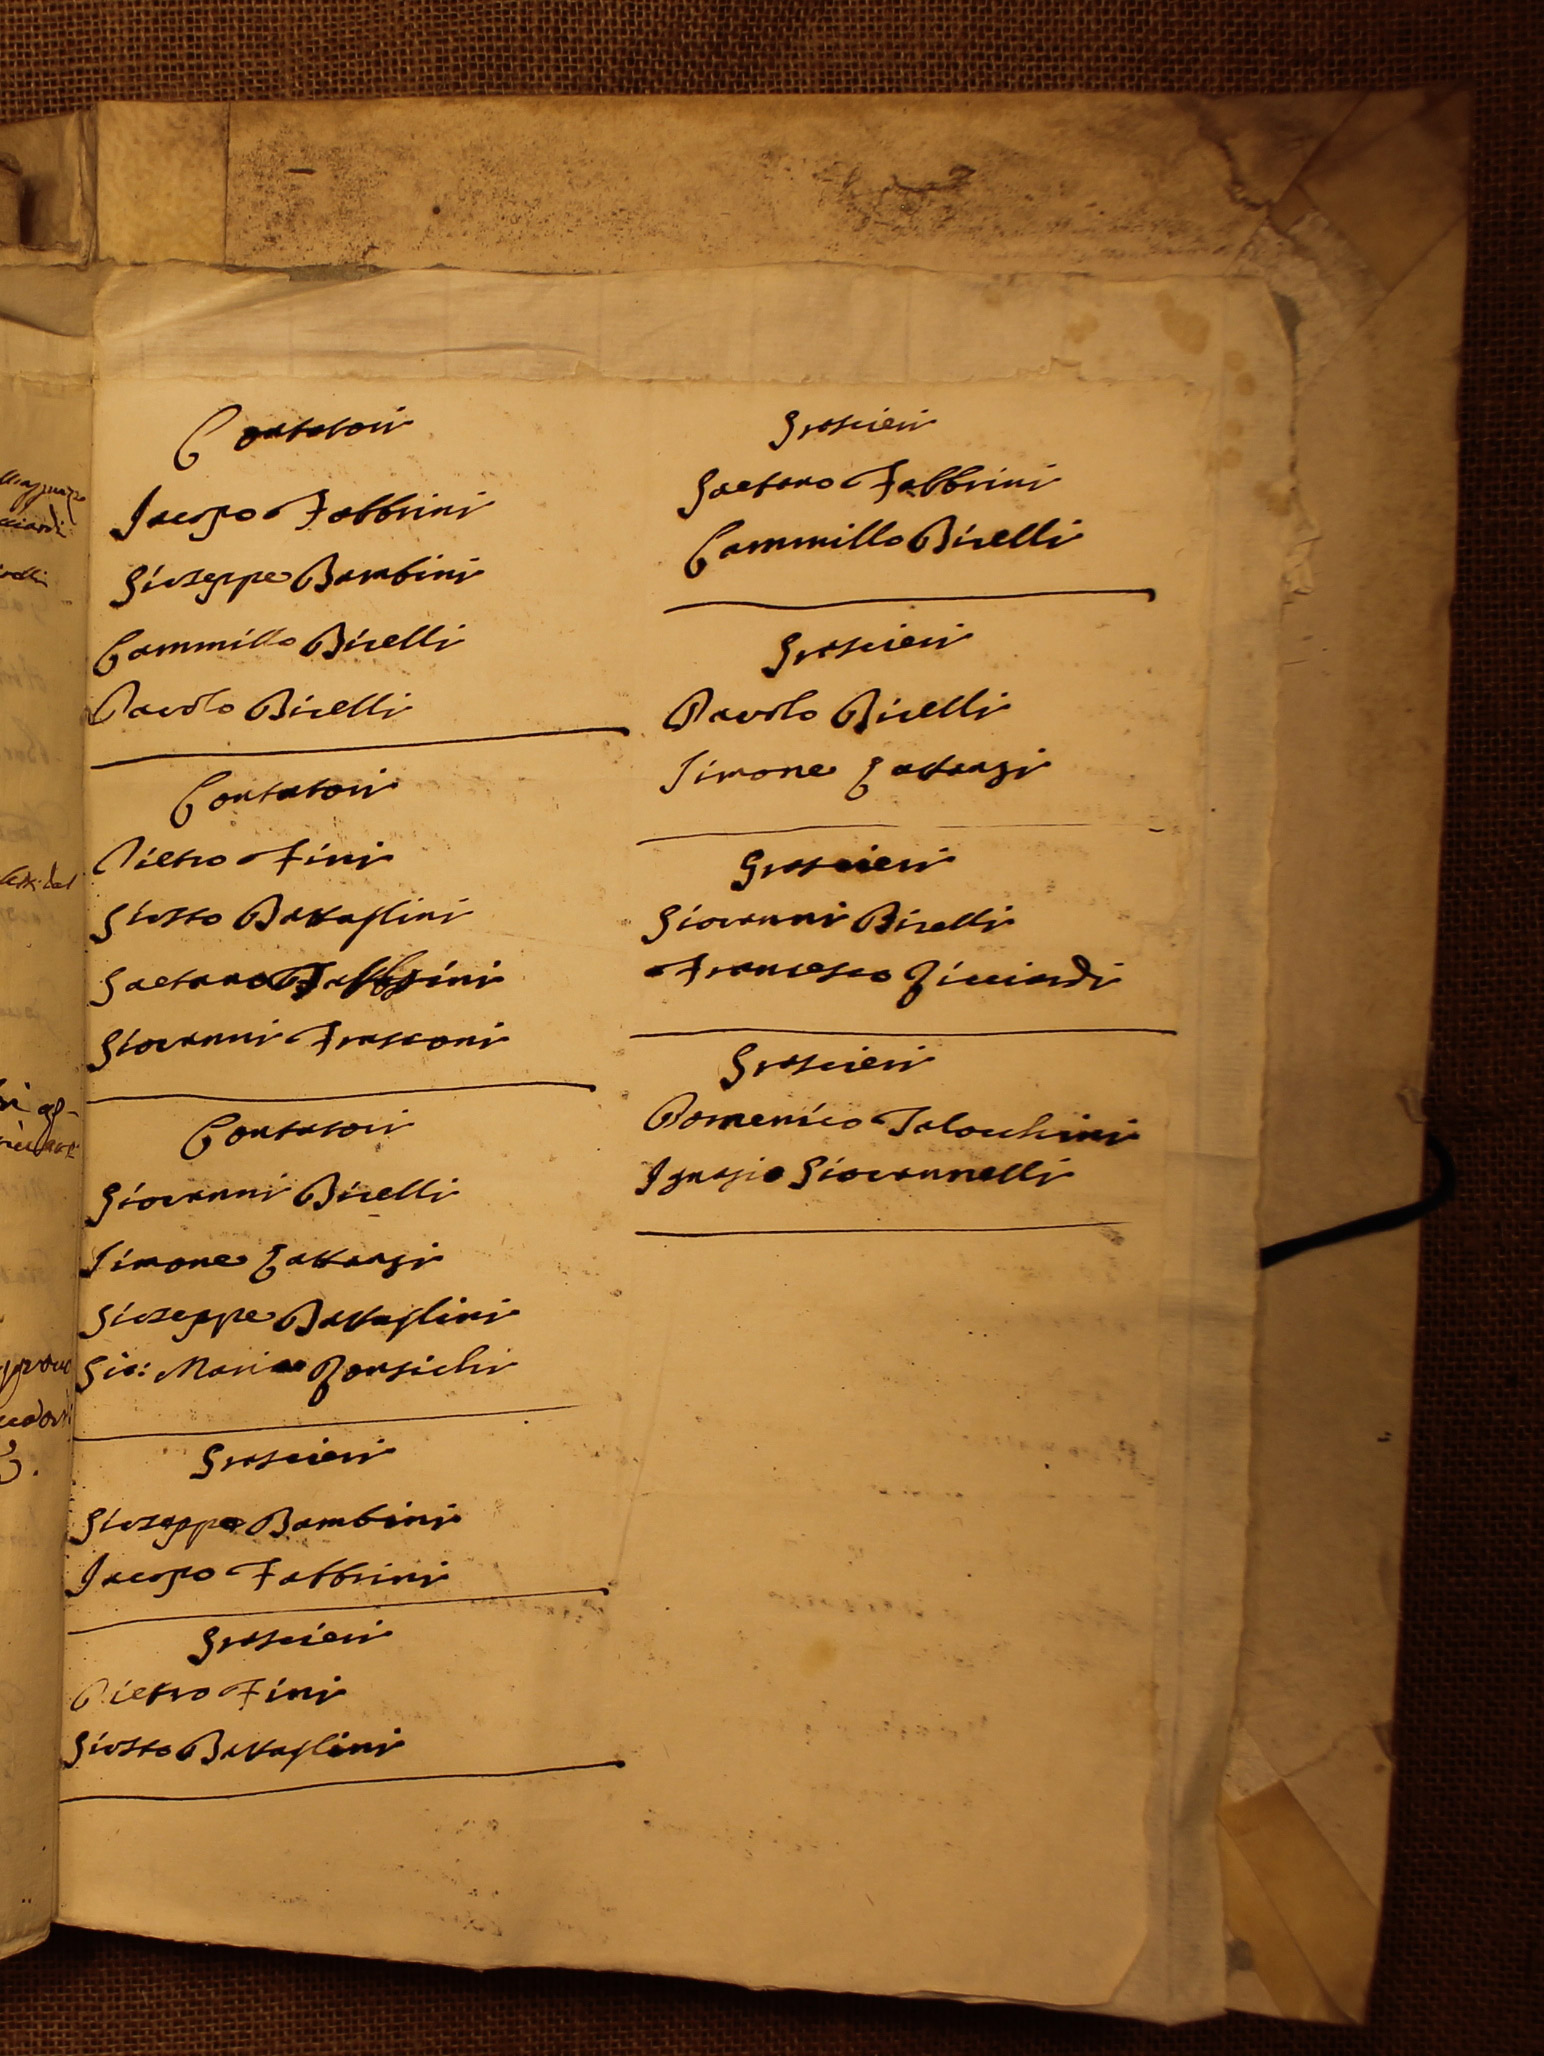 Contatori
Jacopo Fabbrini
Giuseppe Bambini
Cammillo Biselli
Pavolo Biselli
Contatori
Pietro Fini
Giusto Battaglini
Gaetano Fabbrini
Giovanni Frasconi
Contatori
Giovanni Biselli
Simone Cattanzi
Giuseppe Battaglini
Gio: Maria Ronsichi
Grascieri
Giuseppe Bambini
Jacopo Fabbrini
Grascieri
Pietro Fini
Giusto Battaglini
Grascieri
Gaetano Fabbrini
Cammillo Biselli
Grascieri
Pavolo Biselli
Simone Cattanzi
Grascieri
Giovanni Biselli
Francesco Ricciardi
Grascieri
Domenico Talocchini
Ignazio Giovannelli